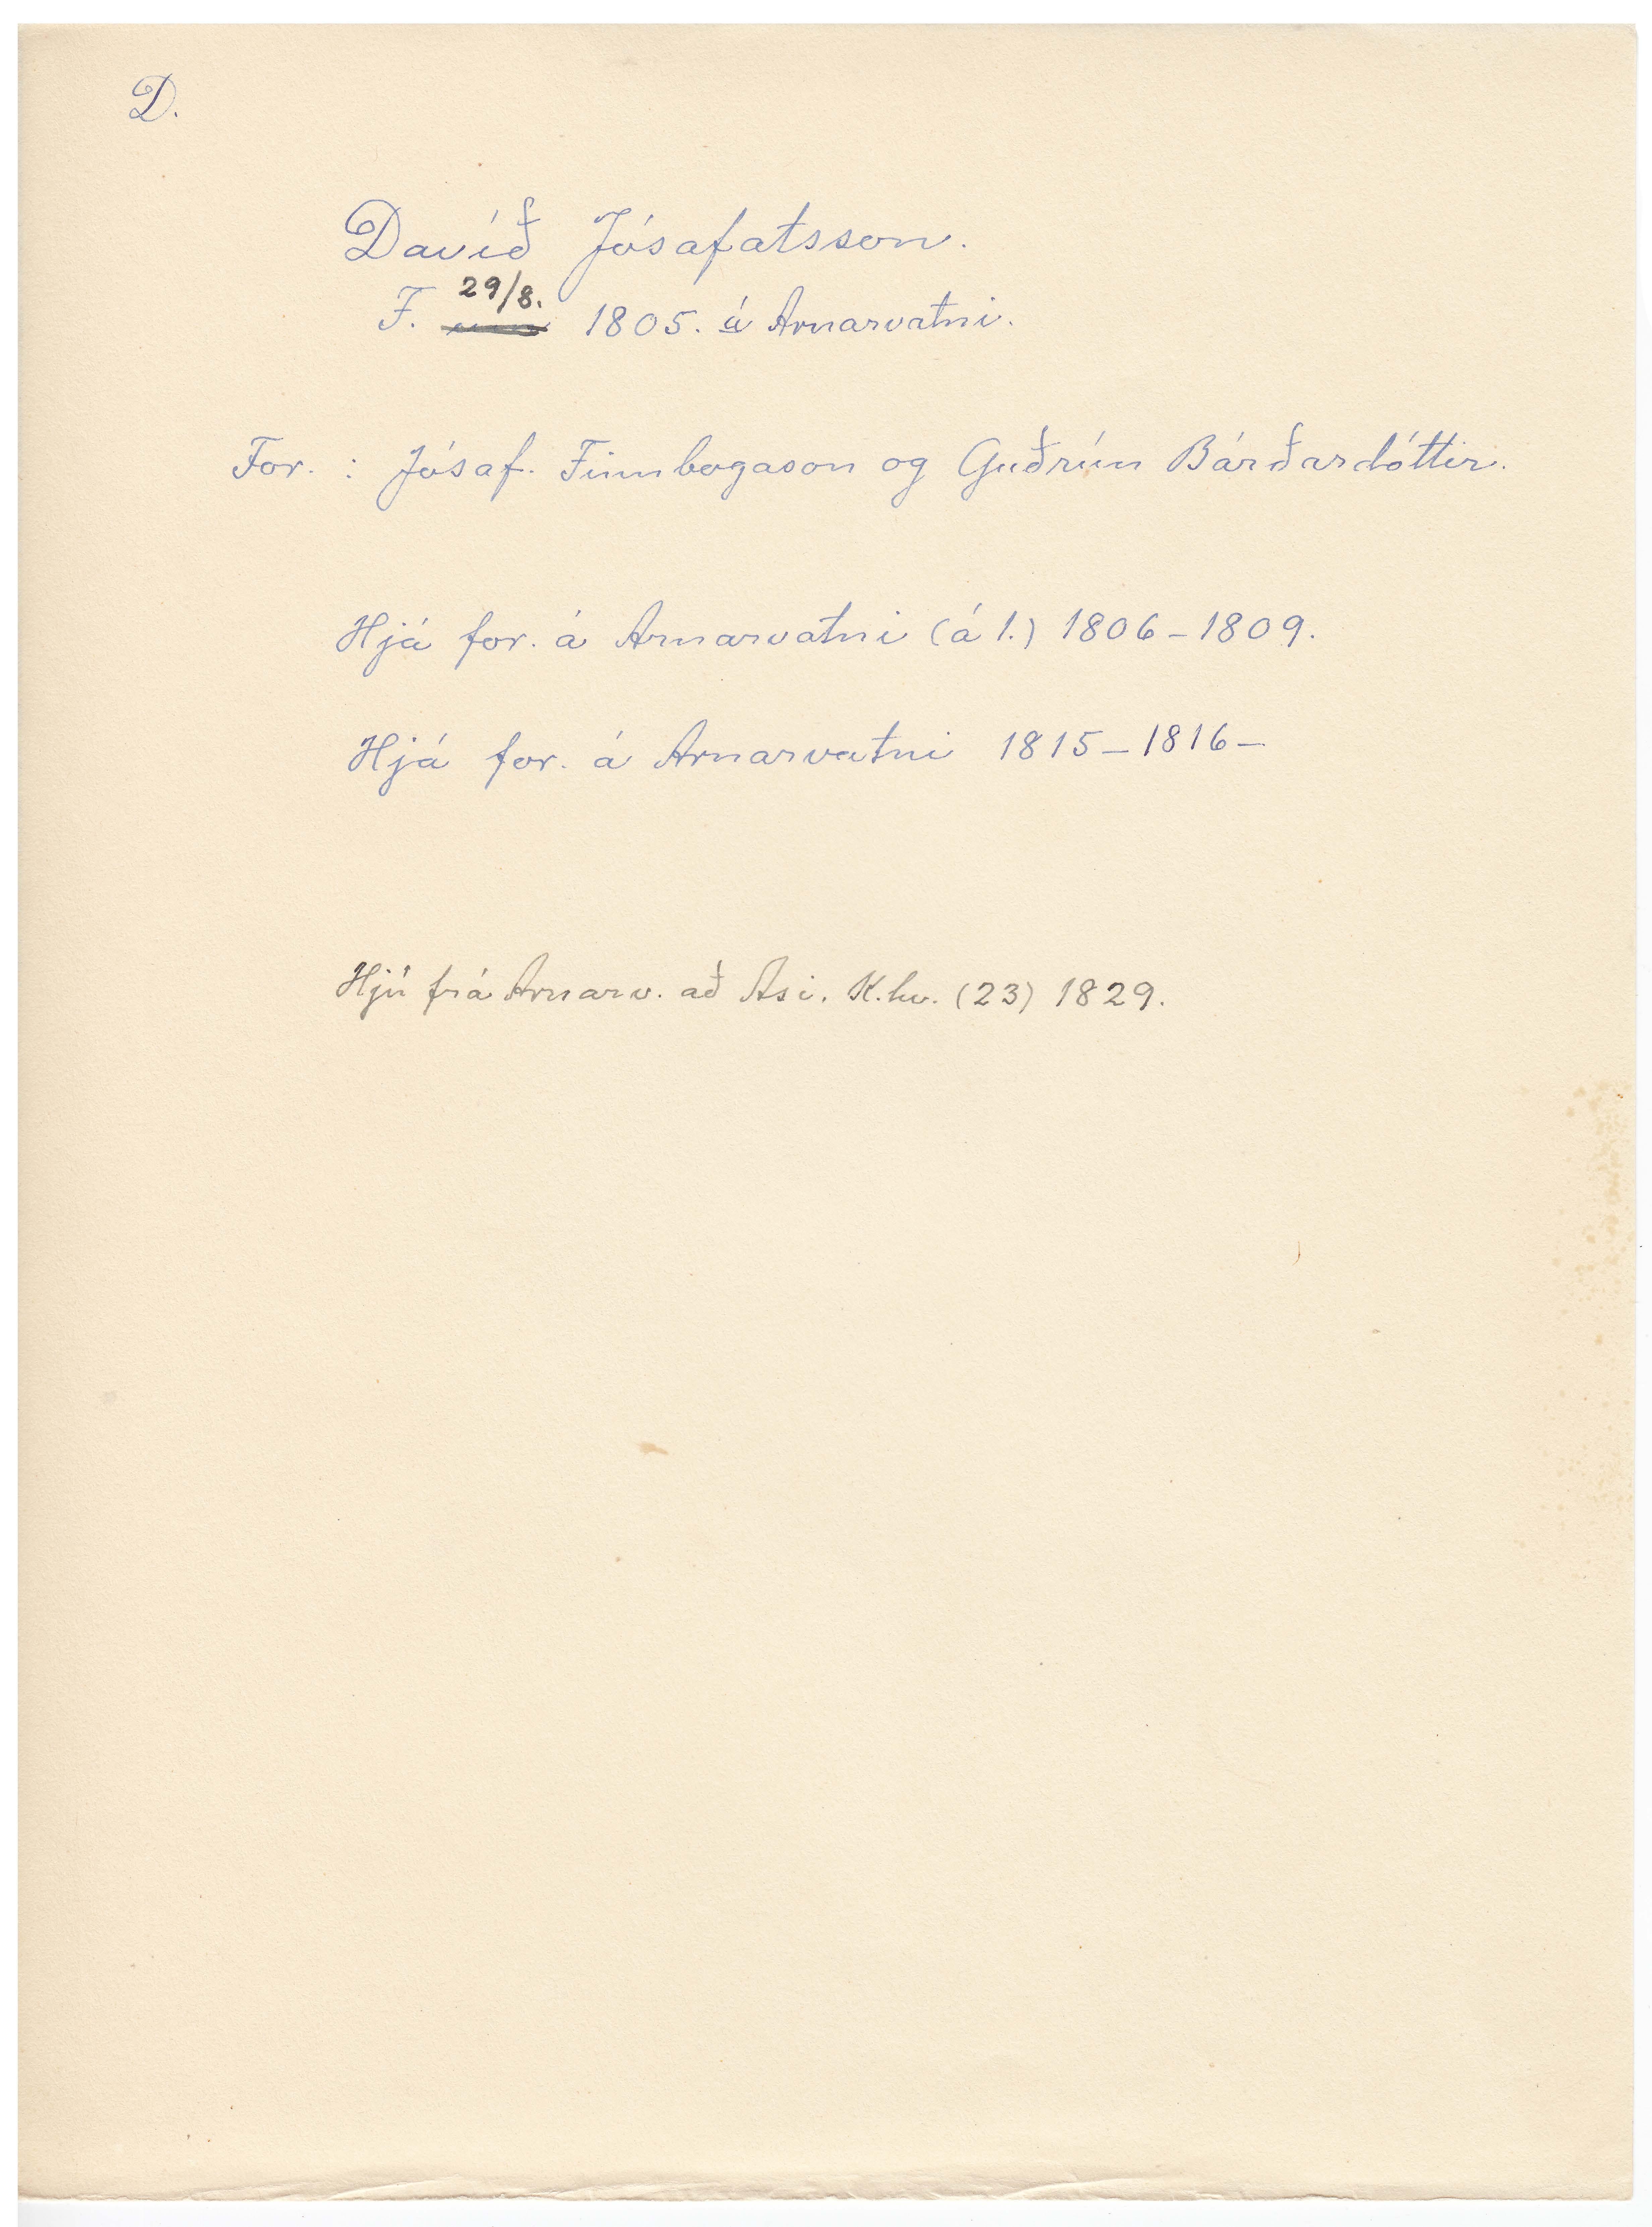 D.
Davíð Jósafatsson.
F. 29/8. 1805. á Arnarvatni.
For. : Jósaf. Finnbogason og Guðrún Bárðardóttir.
Hjá for. á Arnarvatni (á 1.) 1806-1809.
Hjá for. á Arnarvatni 1815-1816-
Hjú frá Arnarv. að Ási. K.hv. (23) 1829.